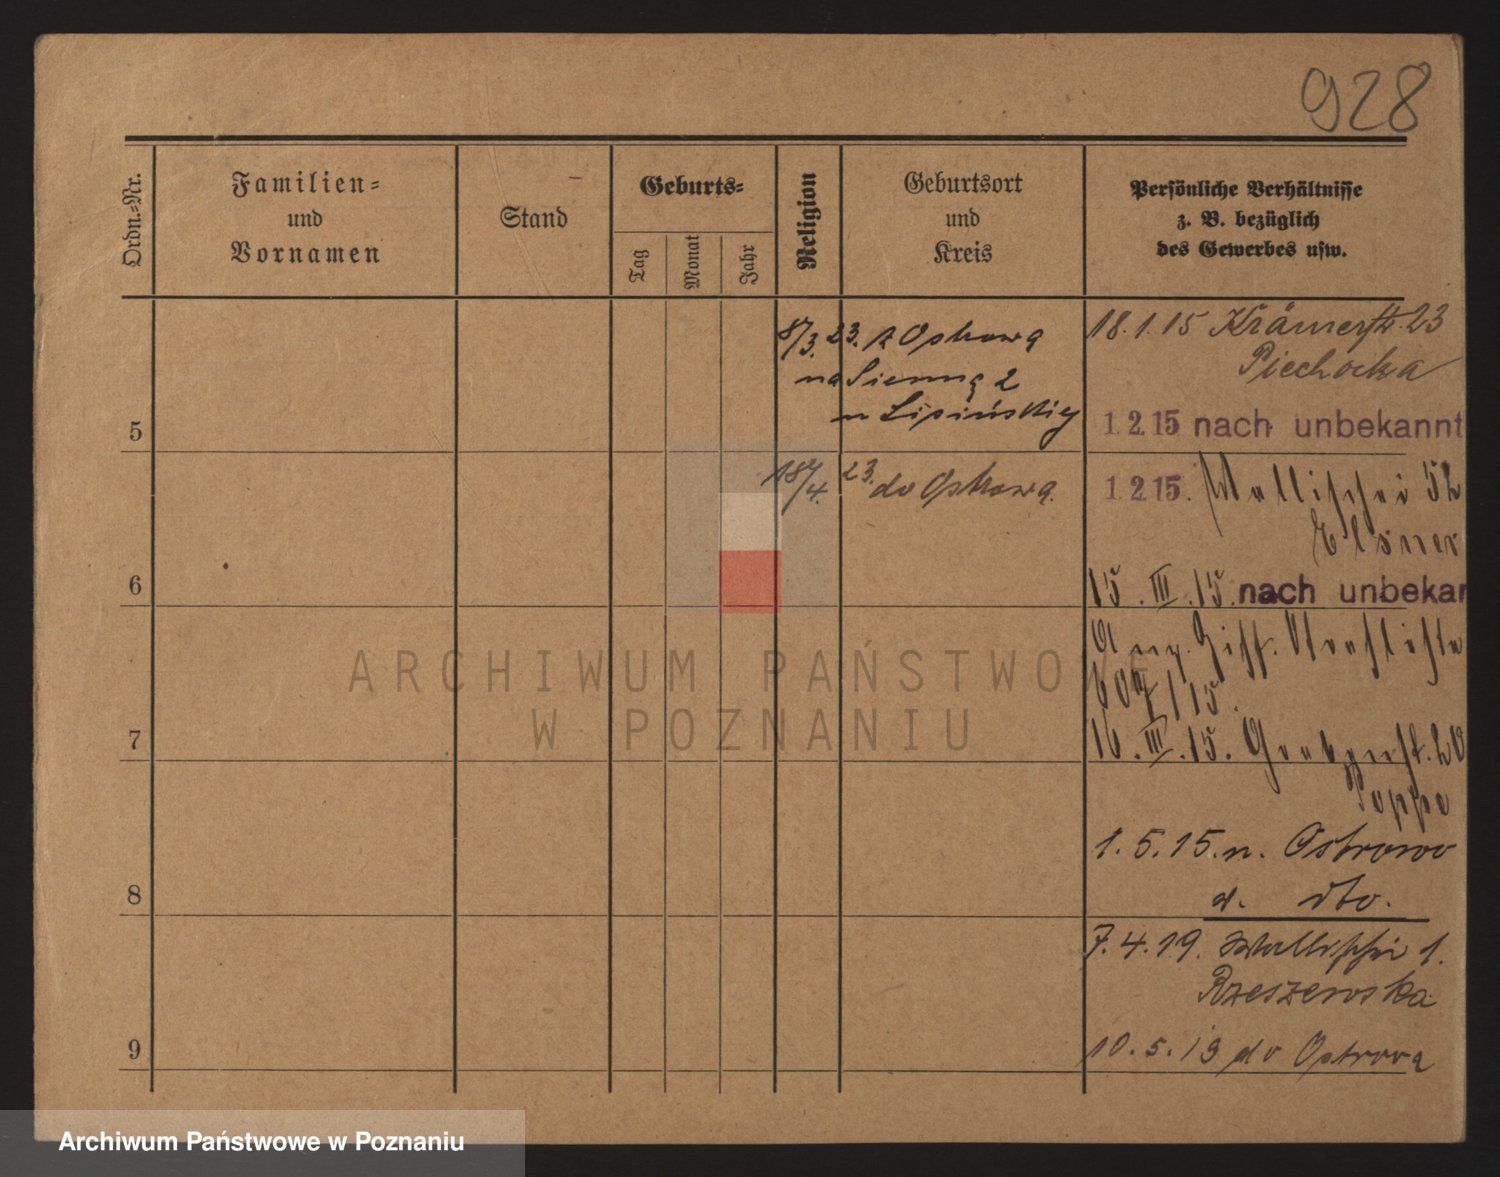 928
Ordn.-Nr.
Familien-
und
Vornamen
Stand
Geburts-
Tag
Monat
Jahr
Religion
Geburtsort
und
Kreis
Persönliche Verhältnisse
z. B. bezüglich
des Gewerbes usw.
8/3. 23. z Ostrowa
na Sienną 2
u Lipińskiej
18.1.15 Krämerstr. 23
Piechocka
1.2.15 nach unbekannt
5
18/4. 23. do Ostrowa.
1.2.15. Wallischei 52
Elsner
15.III.15. nach unbekan
6
607/15.
16.III.15.
7
1.5.15. n. Ostrowo
d. dto.
8
7.4.19. Wallischei 1.
Rzeszewska
10.5.19 do Ostrowa
9
ARCHIWUM PAŃSTWOWE
W POZNANIU
Archiwum Państwowe w Poznaniu